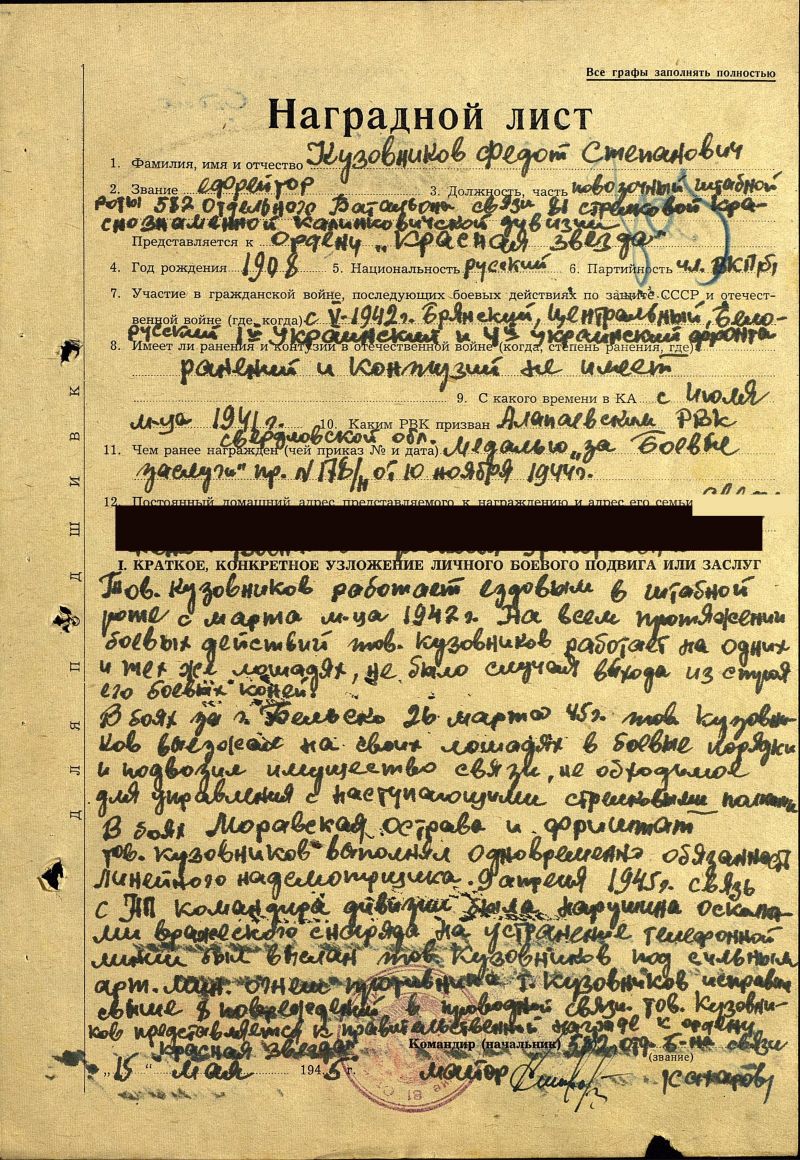 Все графы заполнять полностью
Наградной лист
1. Фамилия, имя и отчество Кузовников Федот Степанович
2. Звание ефрейтор 3. Должность, часть повозочный штабной
роты 582 отдельного Батальона связи 81 стрелковой Кра-
снознаменной Калинковичской дивизии
Представляется к ордену „Красная звезда"
4. Год рождения 1908 5. Национальность русский 6. Партийность чл. ВКП(б)
7. Участие в гражданской войне, последующих боевых действиях по защите СССР и отечест-
венной войне (где, когда) с V-1942г. Брянский, Центральный, Бело-
русский 1й Украинский и 4й Украинский фронта
8. Имеет ли ранения и контузии в отечественной войне (когда, степень ранения, где)
ранений и контузий не имеет
9. С какого времени в КА с Июля
м-ца 1941г. 10. Каким РВК призван Алапаевским РВК
свердловской обл.
11. Чем ранее награжден (чей приказ № и дата) Медалью „за Боевые
заслуги" пр. N 178/н от 10 ноября 1944г.
12. Постоянный домашний адрес представляемого к награждению и адрес его семьи
I. КРАТКОЕ, КОНКРЕТНОЕ УЗЛОЖЕНИЕ ЛИЧНОГО БОЕВОГО ПОДВИГА ИЛИ ЗАСЛУГ
Тов. Кузовников работает ездовым в штабной
роте с марта м-ца 1942г. На всем протяжении
боевых действий тов. Кузовников работает на одних
и тех же лошадях, не было случая выхода из строя
его боевых коней.
В боях за г. Бельско 26 марта 45г. тов Кузовни-
ков выезжал на своих лошадях в боевые порядки
и подвозил имущество связи, не обходимое
для управления с наступающими стрелковыми полками
В боях Моравская острава и фриштат
тов. Кузовников выполнял одновременно обязанност
линейного надсмотрщика. 9 апреля 1945г. связь
с НП командира дивизии была нарушина оскол-
ми вражеского снаряда на устранение телефонной
линии был выслан тов Кузовников под сильным
арт. мин. огнем противника т. Кузовников исправил
свыше 8 повреждений в проводной связи. тов. Кузовни-
ков представляется к правительственной награде к ордену
Красная звезда. Командир (начальник) 582 отд. б-на связи
(звание)
„15" мая 1945 г. майор
ДЛЯ ПОДШИВКИ